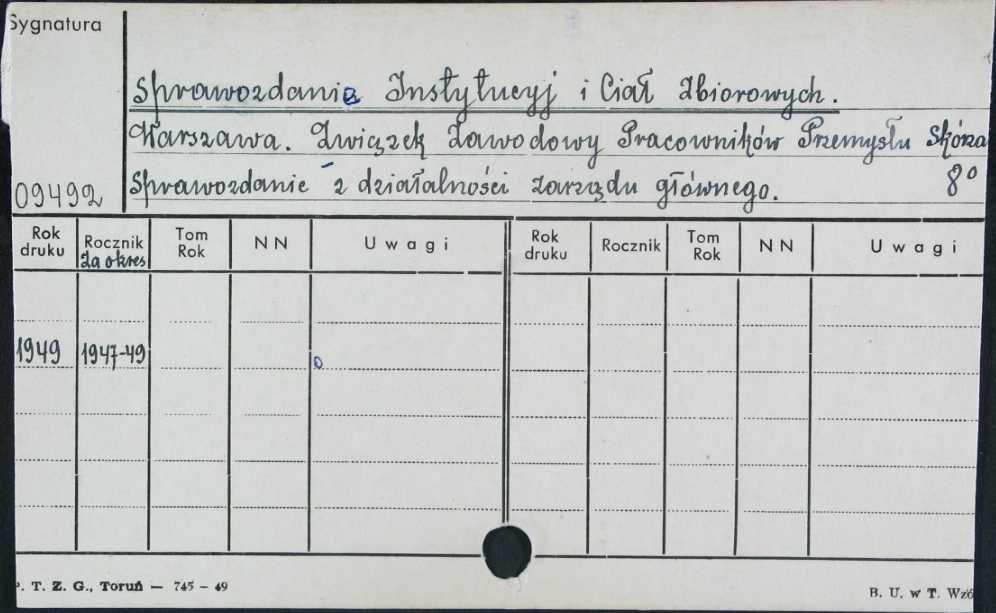 Sygnatura
Sprawozdania Instytucyj i Ciał Zbiorowych.
Warszawa. Związek Zawodowy Pracowników Przemysłu Skórza
Sprawozdanie z działalności zarządu głównego. 8°
09492
Rok druku Rocznik Za okres Tom Rok NN Uwagi Rok druku Rocznik Tom Rok NN Uwagi
1949 1947-49 o
P. T. Z. G., Toruń — 745 – 49
B. U. w T. Wzó